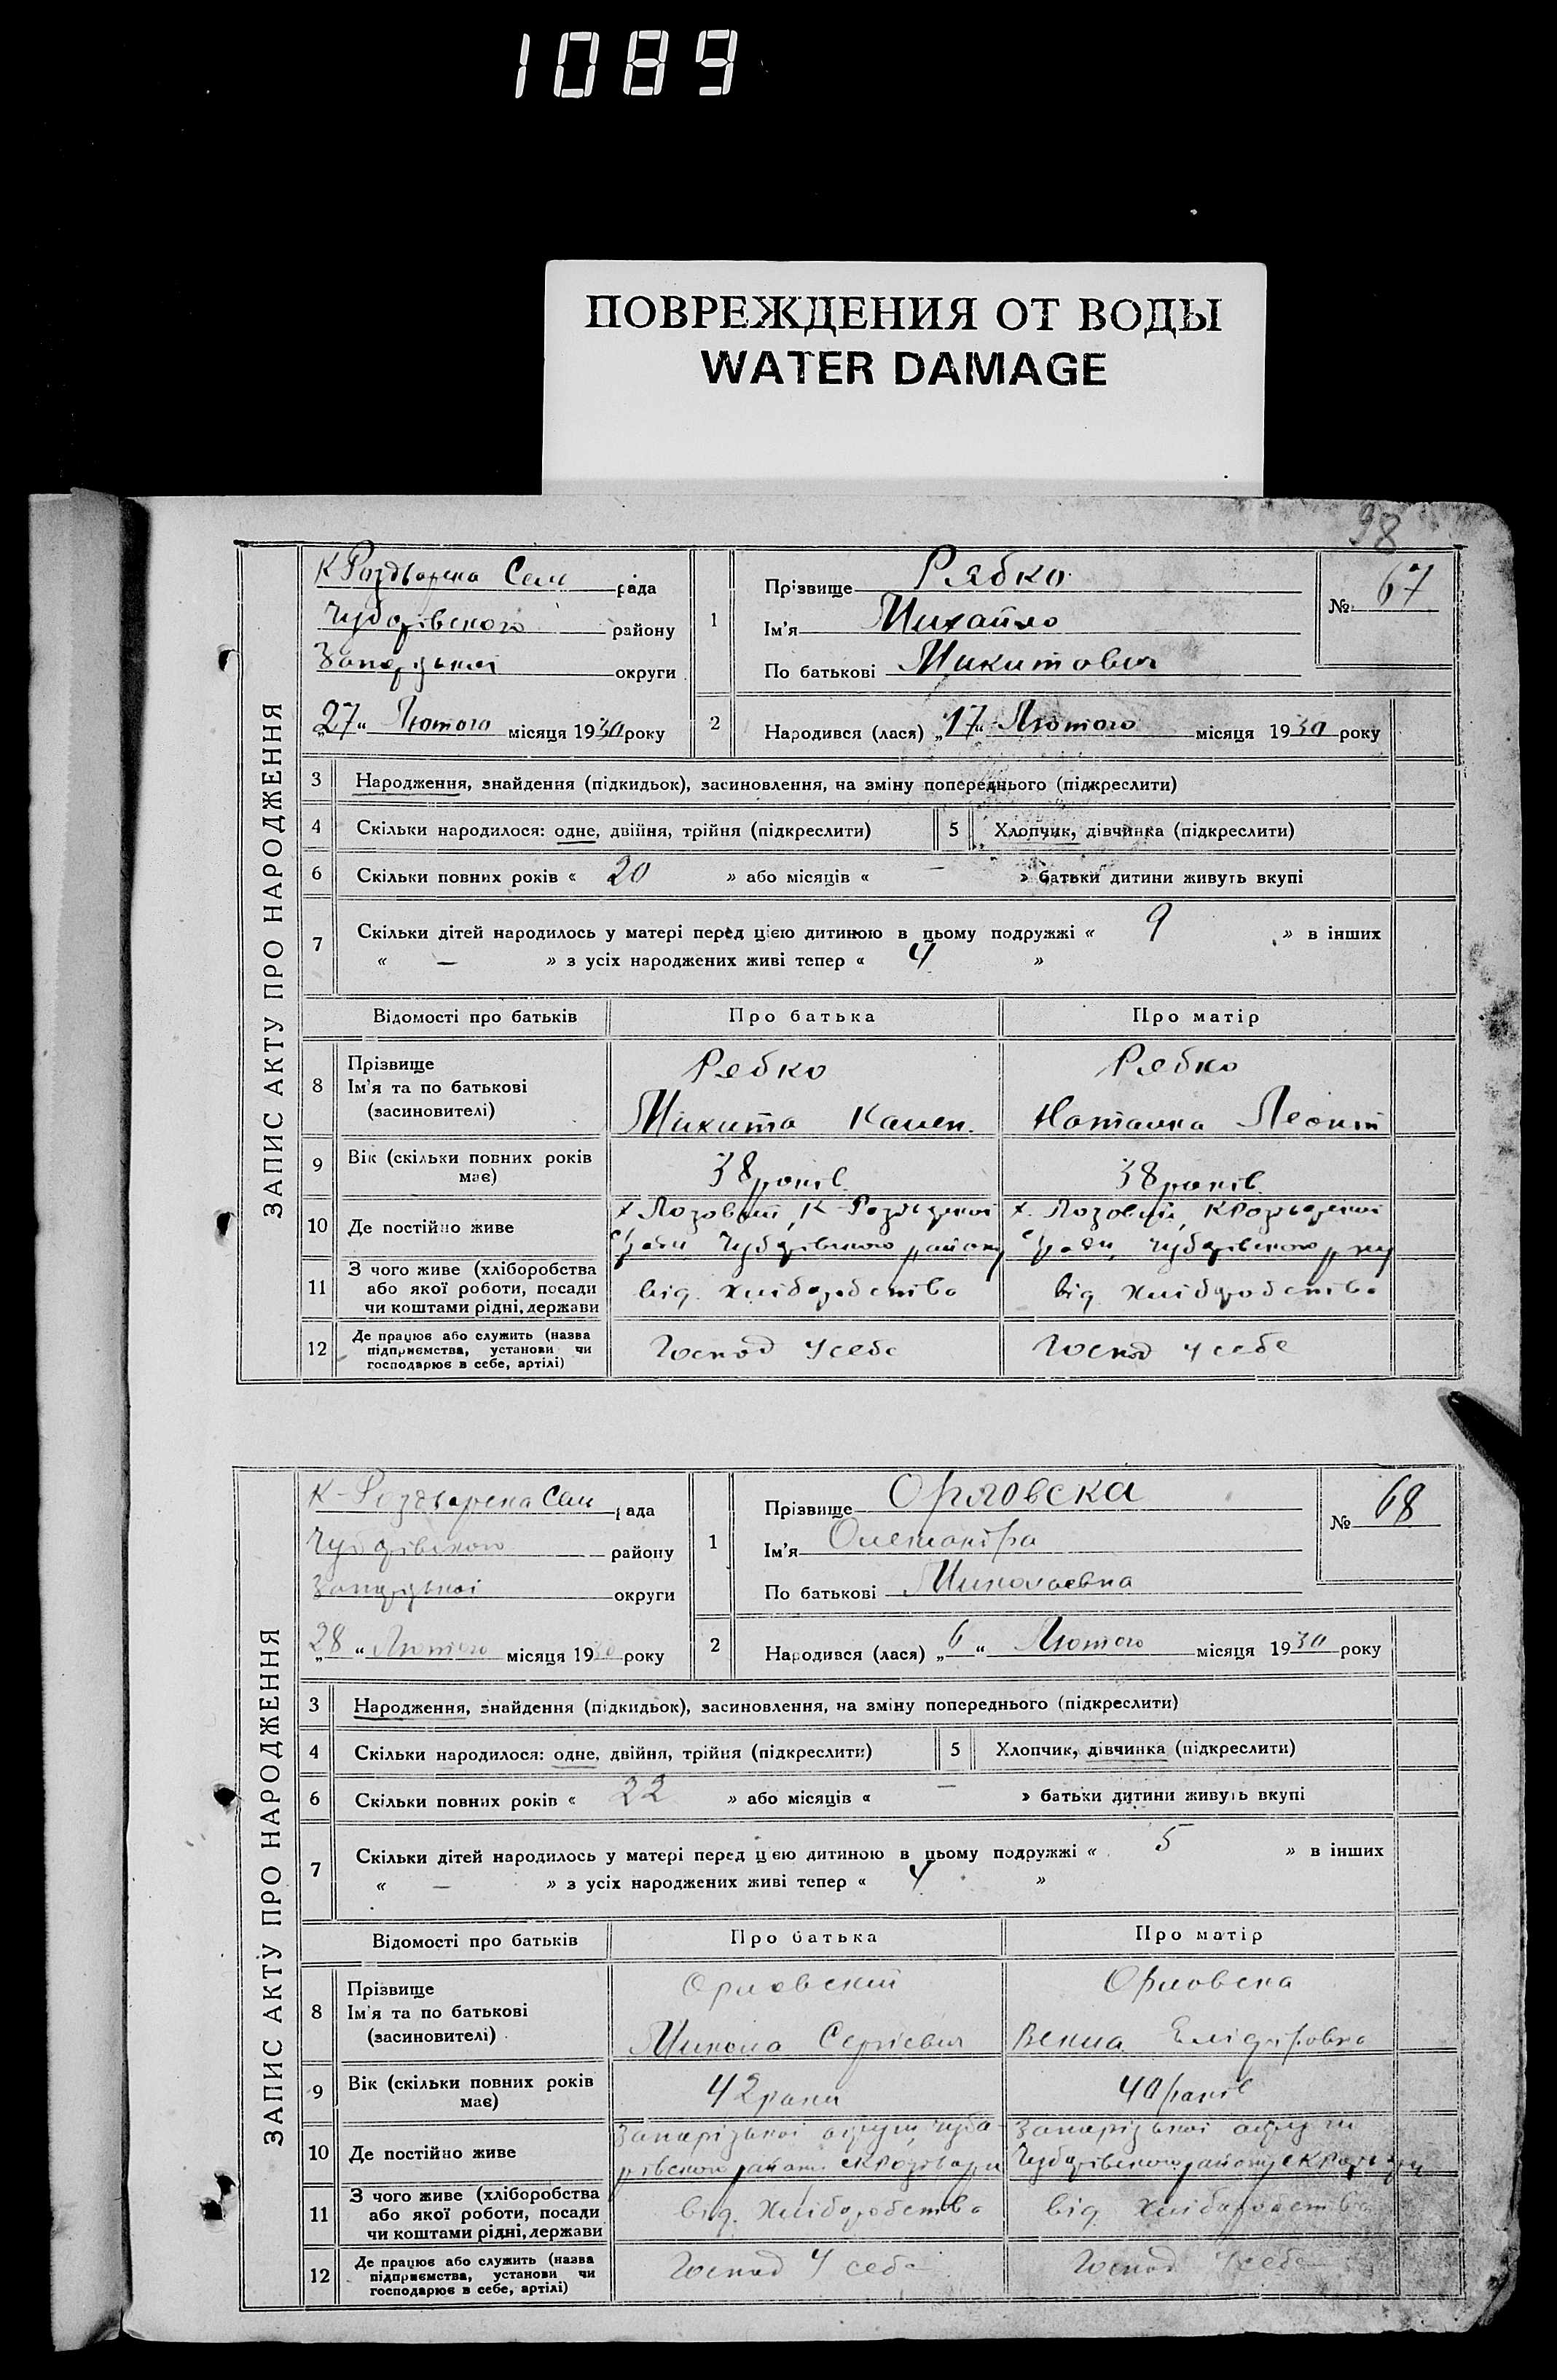 1089
ПОВРЕЖДЕНИЯ ОТ ВОДЫ
WATER DAMAGE
98
ЗАПИС АКТУ ПРО НАРОДЖЕННЯ
К Роздорска Сел рада
Чубарівского району
Запорізької округи
„27“ Лютого місяця 1930 року
1 Прізвище Рябко
Ім'я Михайло
По батькові Микитович
№ 67
2 Народився (лася) „17“ Лютого місяця 1930 року
3 Народження, знайдення (підкидьок), засиновлення, на зміну попереднього (підкреслити)
4 Скільки народилося: одне, двійня, трійня (підкреслити) 5 Хлопчик, дівчинка (підкреслити)
6 Скільки повних років « 20 » або місяців « — » батьки дитини живуть вкупі
7 Скільки дітей народилось у матері перед цією дитиною в цьому подружжі « 9 » в інших
« — » з усіх народжених живі тепер « 4 »
Відомості про батьків Про батька Про матір
8 Прізвище
Ім'я та по батькові
(засиновителі)
Рябко
Микита Камен.
Рябко
Наталка Леонт
9 Вік (скільки повних років
має)
38 років
38 років
10 Де постійно живе
х Лозовий, К
Чубарівского району
х. Лозовий, К
Чубарівского
11 З чого живе (хліборобства
або якої роботи, посади
чи коштами рідні, держави
від хліборобства
від хліборобства
12 Де працює або служить (назва
підприємства, установи чи
господарює в себе, артілі)
Господ у себе
Господ у себе
ЗАПИС АКТУ ПРО НАРОДЖЕННЯ
К-Роздорска Сел рада
Чубарівского району
Запорізької округи
„28“ Лютого місяця 1930 року
1 Прізвище Орловска
Ім'я Олександра
По батькові Миколаевна
№ 68
2 Народився (лася) „6“ Лютого місяця 1930 року
3 Народження, знайдення (підкидьок), засиновлення, на зміну попереднього (підкреслити)
4 Скільки народилося: одне, двійня, трійня (підкреслити) 5 Хлопчик, дівчинка (підкреслити)
6 Скільки повних років « 22 » або місяців « — » батьки дитини живуть вкупі
7 Скільки дітей народилось у матері перед цією дитиною в цьому подружжі « 5 » в інших
« — » з усіх народжених живі тепер « 4 »
Відомості про батьків Про батька Про матір
8 Прізвище
Ім'я та по батькові
(засиновителі)
Орловский
Микола Сергіевич
Орловска
9 Вік (скільки повних років
має)
42 роки
40 років
10 Де постійно живе
Запорізької округи, Чуба
рівского району
Запорізької округи
Чубарівского району
11 З чого живе (хліборобства
або якої роботи, посади
чи коштами рідні, держави
від. Хліборобства
від Хліборобства
12 Де працює або служить (назва
підприємства, установи чи
господарює в себе, артілі)
Господ у себе
Господ у себе